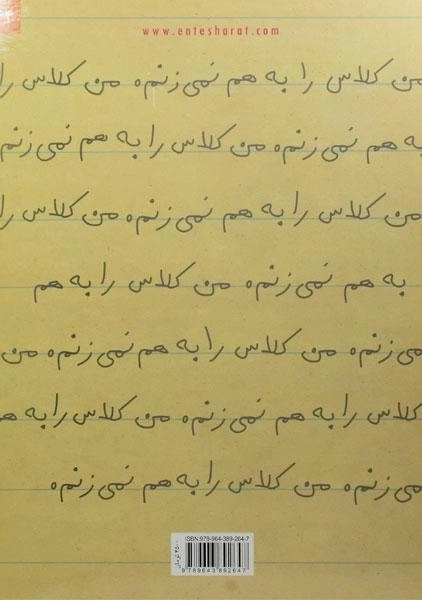 www.entesharat.com
من کلاس را به هم نمی‌زنم. من کلاس را
به هم نمی‌زنم. من کلاس را به هم نمی‌زنم.
من کلاس را به هم نمی‌زنم. من کلاس را
به هم نمی‌زنم. من کلاس را به هم
نمی‌زنم. من کلاس را به هم نمی‌زنم. من
کلاس را به هم نمی‌زنم. من کلاس را به هم
نمی‌زنم. من کلاس را به هم نمی‌زنم.
ISBN:978-964-389-264-7
9789643892647